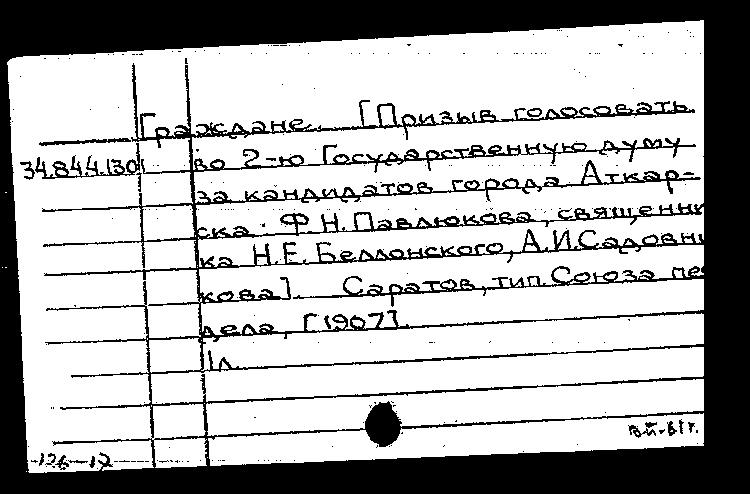 Граждане. [Призыв голосовать
34.844.1301 во 2-ю Государственную думу
за кандидатов города Аткар-
ска: Ф.Н.Павлюкова, священни
ка Н.Е. Беллонского, А.И.Садовни
кова]. Саратов, тип. Союза пе
дела, [1907].
1л.
126-12